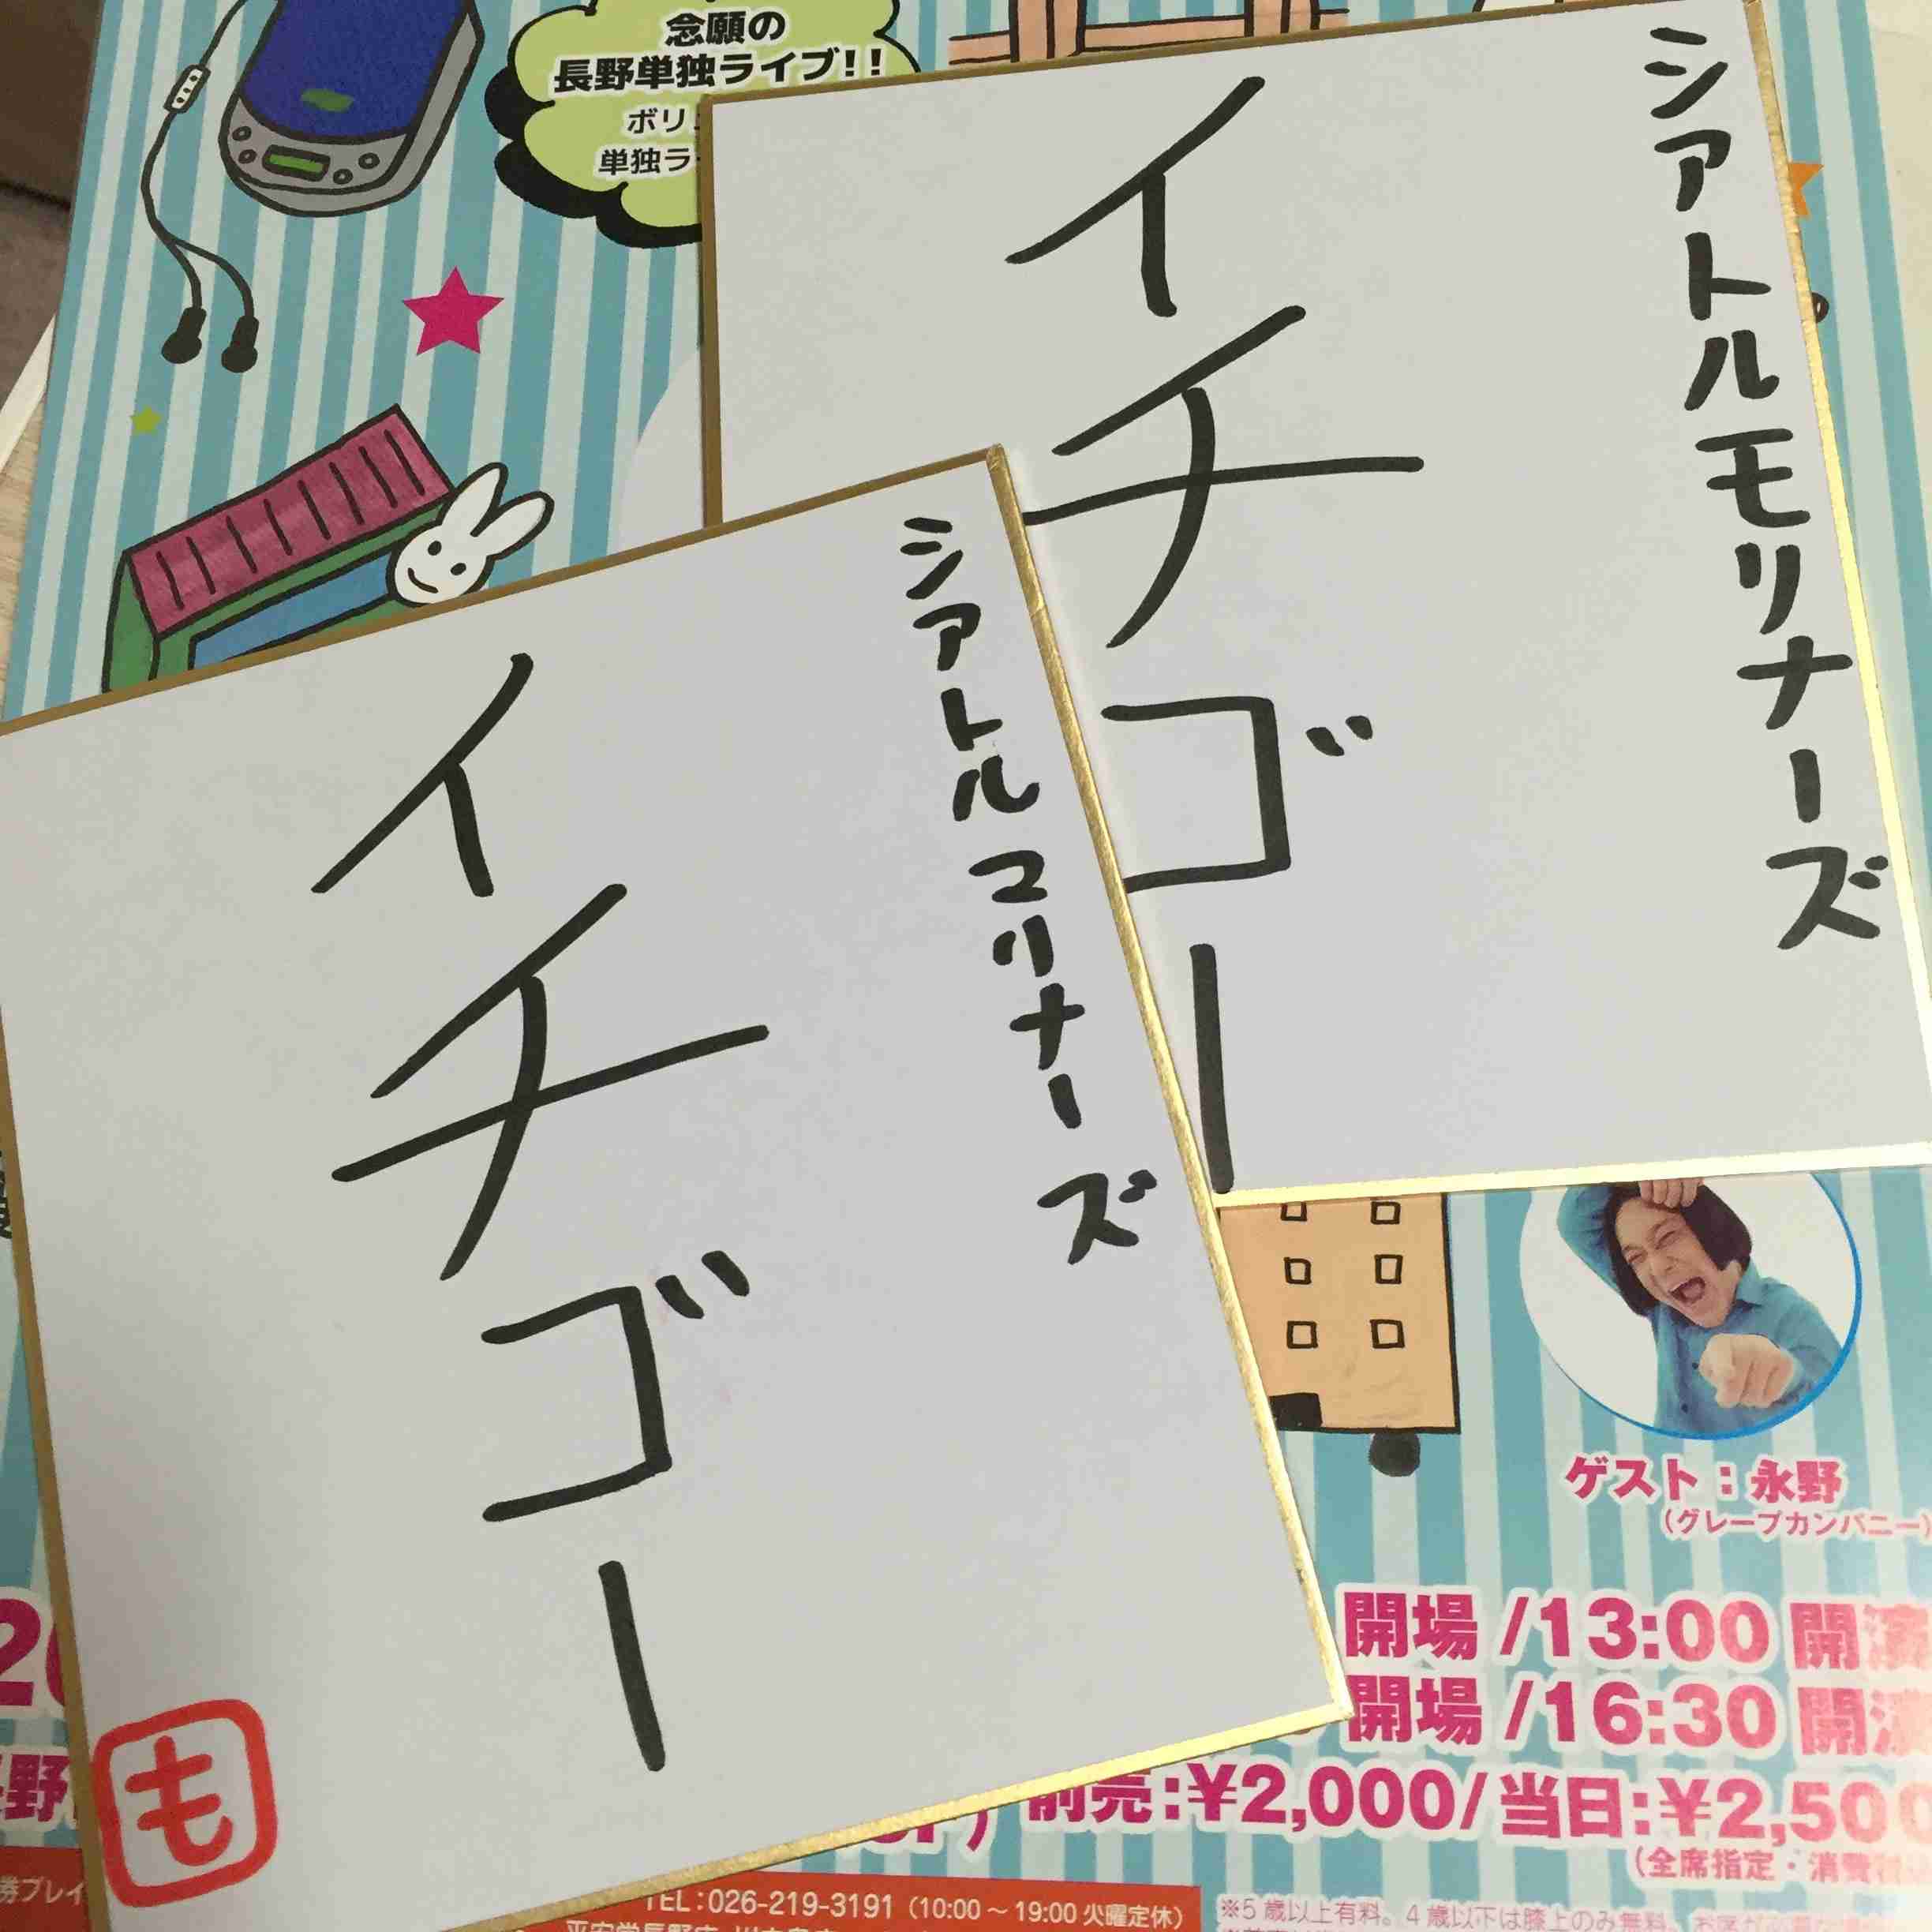 念願の
長野単独ライブ!!
ボリ
単独ラ
シアトルモリナーズ
イチゴー
シアトルコリナーズ
イチゴー
も
ゲスト：永野
(グレープカンパニー)
開場 /13:00 開演
開場 /16:30 開演
前売:¥2,000/当日:¥2,500
(全席指定・消費
TEL:026-219-3191（10:00～19:00 火曜定休）
※5歳以上有料。4歳以下は膝上のみ無料。お
券プレイ